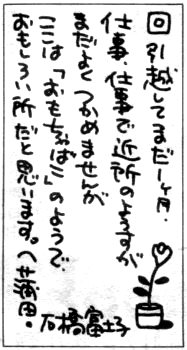 回引越してまだ一ヶ月。
仕事、仕事で近所のようすが
まだよくつかめませんが
ここは「おもちゃばこ」のようで、
おもしろい所だと思います。
石橋富士子